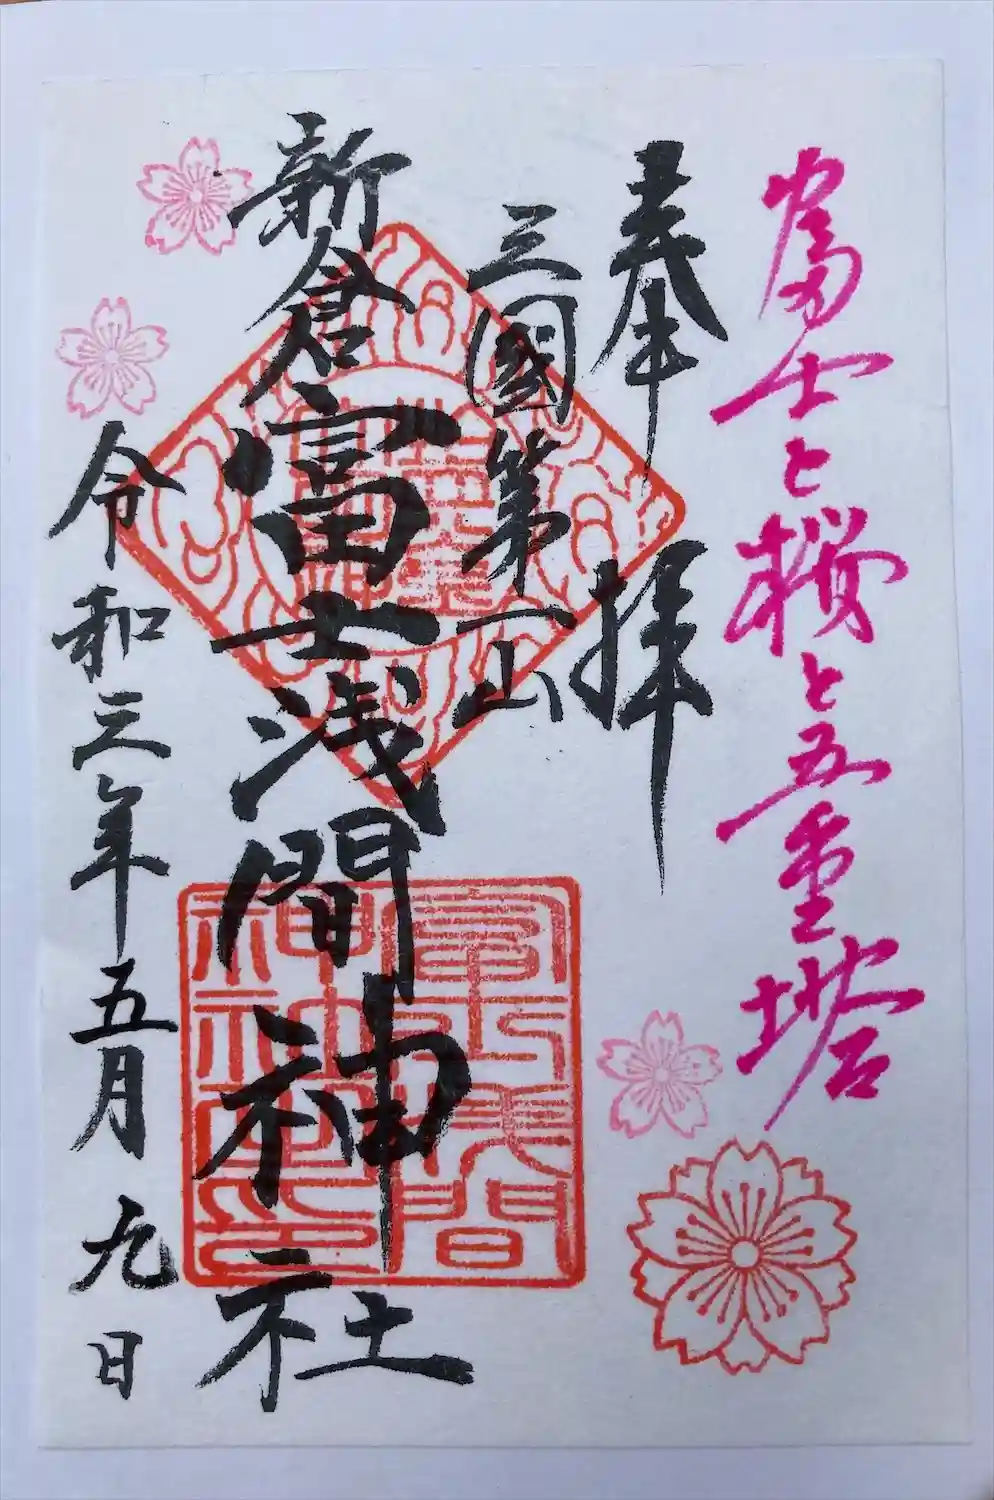 富士と桜と五重塔
奉拝
三國第一山
新倉富士浅間神社
令和三年五月九日